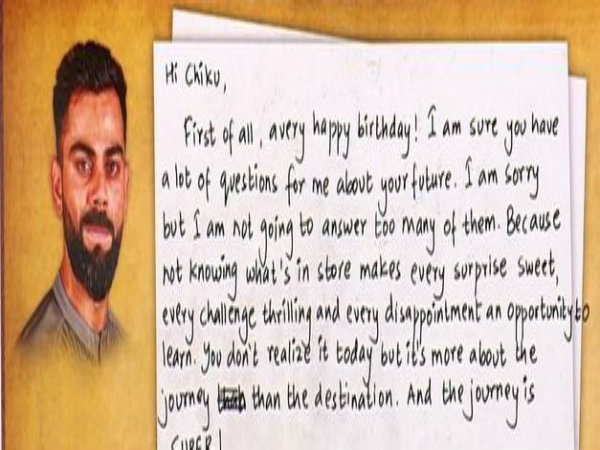 Hi Chiku,
First of all, a very happy birthday! I am sure you have
a lot of questions for me about your future. I am sorry
but I am not going to answer too many of them. Because
not knowing what's in store makes every surprise sweet,
every challenge thrilling and every disappointment an opportunity to
learn. You don't realize it today but it's more about the
journey than the destination. And the journey is
SUPER!